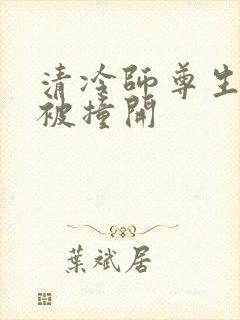 清冷師尊生
被撞開
葉斌居